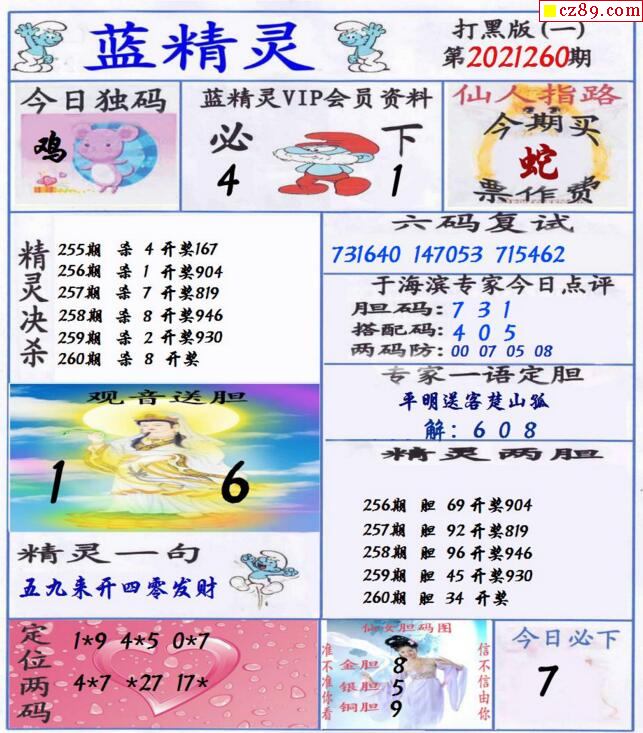 cz89.com
蓝精灵
打黑版(一)
第2021260期
今日独码
鸡
蓝精灵VIP会员资料
必 下
4 1
仙人指路
今期买
蛇
票作费
精灵决杀
255期 杀 4 开奖167
256期 杀 1 开奖904
257期 杀 7 开奖819
258期 杀 8 开奖946
259期 杀 2 开奖930
260期 杀 8 开奖
六码复试
731640 147053 715462
于海滨专家今日点评
胆码:7 3 1
搭配码:4 0 5
两码防:00 07 05 08
专家一语定胆
平明送客楚山孤
解:6 0 8
观音送胆
1 6
精灵两胆
256期 胆 69 开奖904
257期 胆 92 开奖819
258期 胆 96 开奖946
259期 胆 45 开奖930
260期 胆 34 开奖
精灵一句
五九来开四零发财
定位两码
1*9 4*5 0*7
4*7 *27 17*
仙女胆码图
准不准你看
金胆 8
银胆 5
铜胆 9
信不信由你
今日必下
7